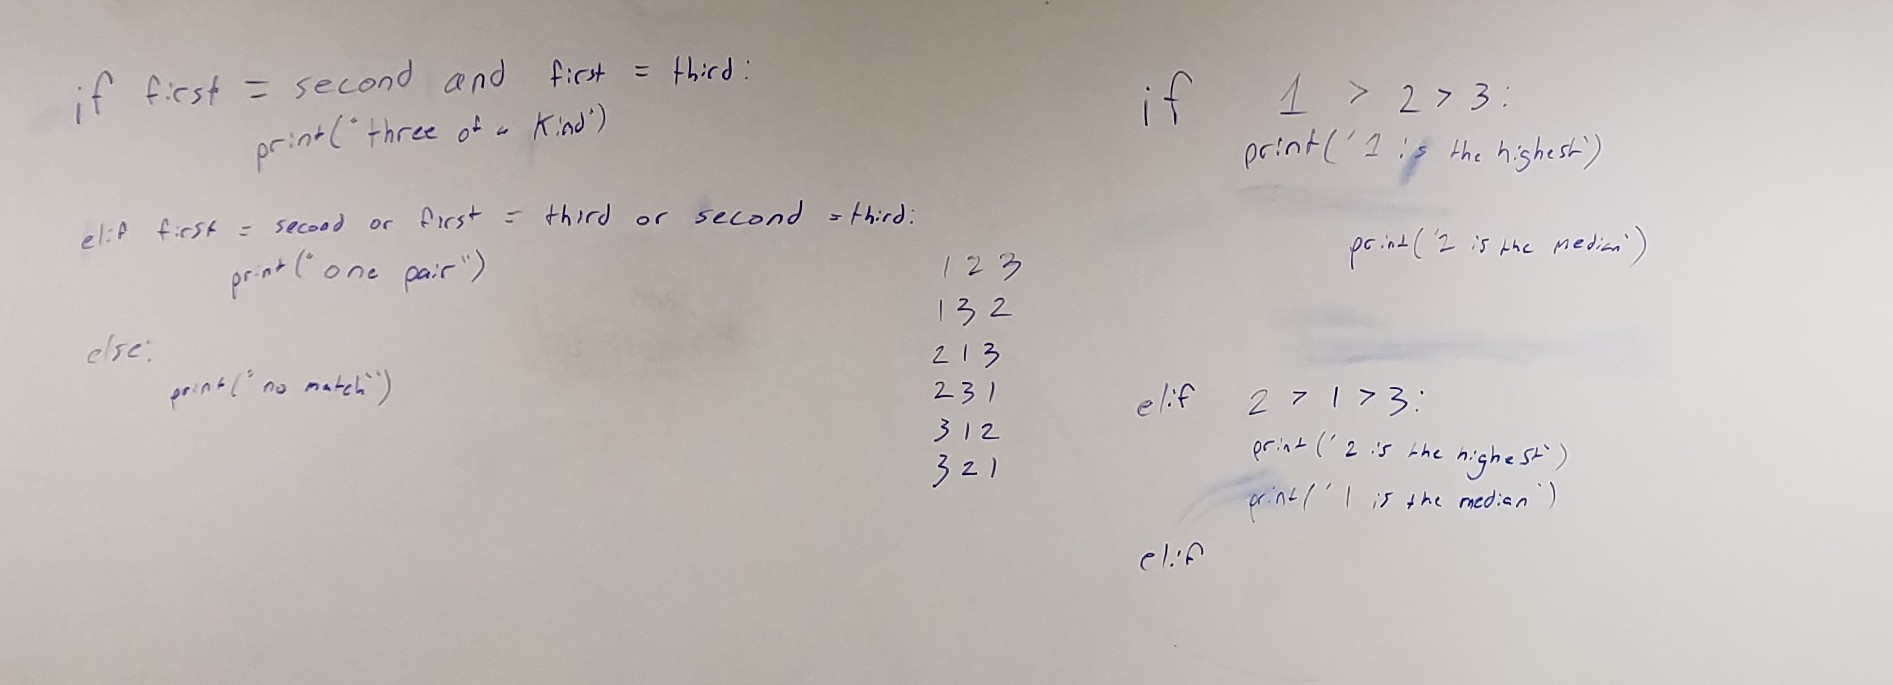 if first = second and first = third:
print("three of a kind")
elif first = second or first = third or second = third:
print("one pair")
else:
print("no match")
1 2 3
1 3 2
2 1 3
2 3 1
3 1 2
3 2 1
if 1 > 2 > 3:
print('1 is the highest')
print('2 is the median')
elif 2 > 1 > 3:
print('2 is the highest')
print('1 is the median')
elif